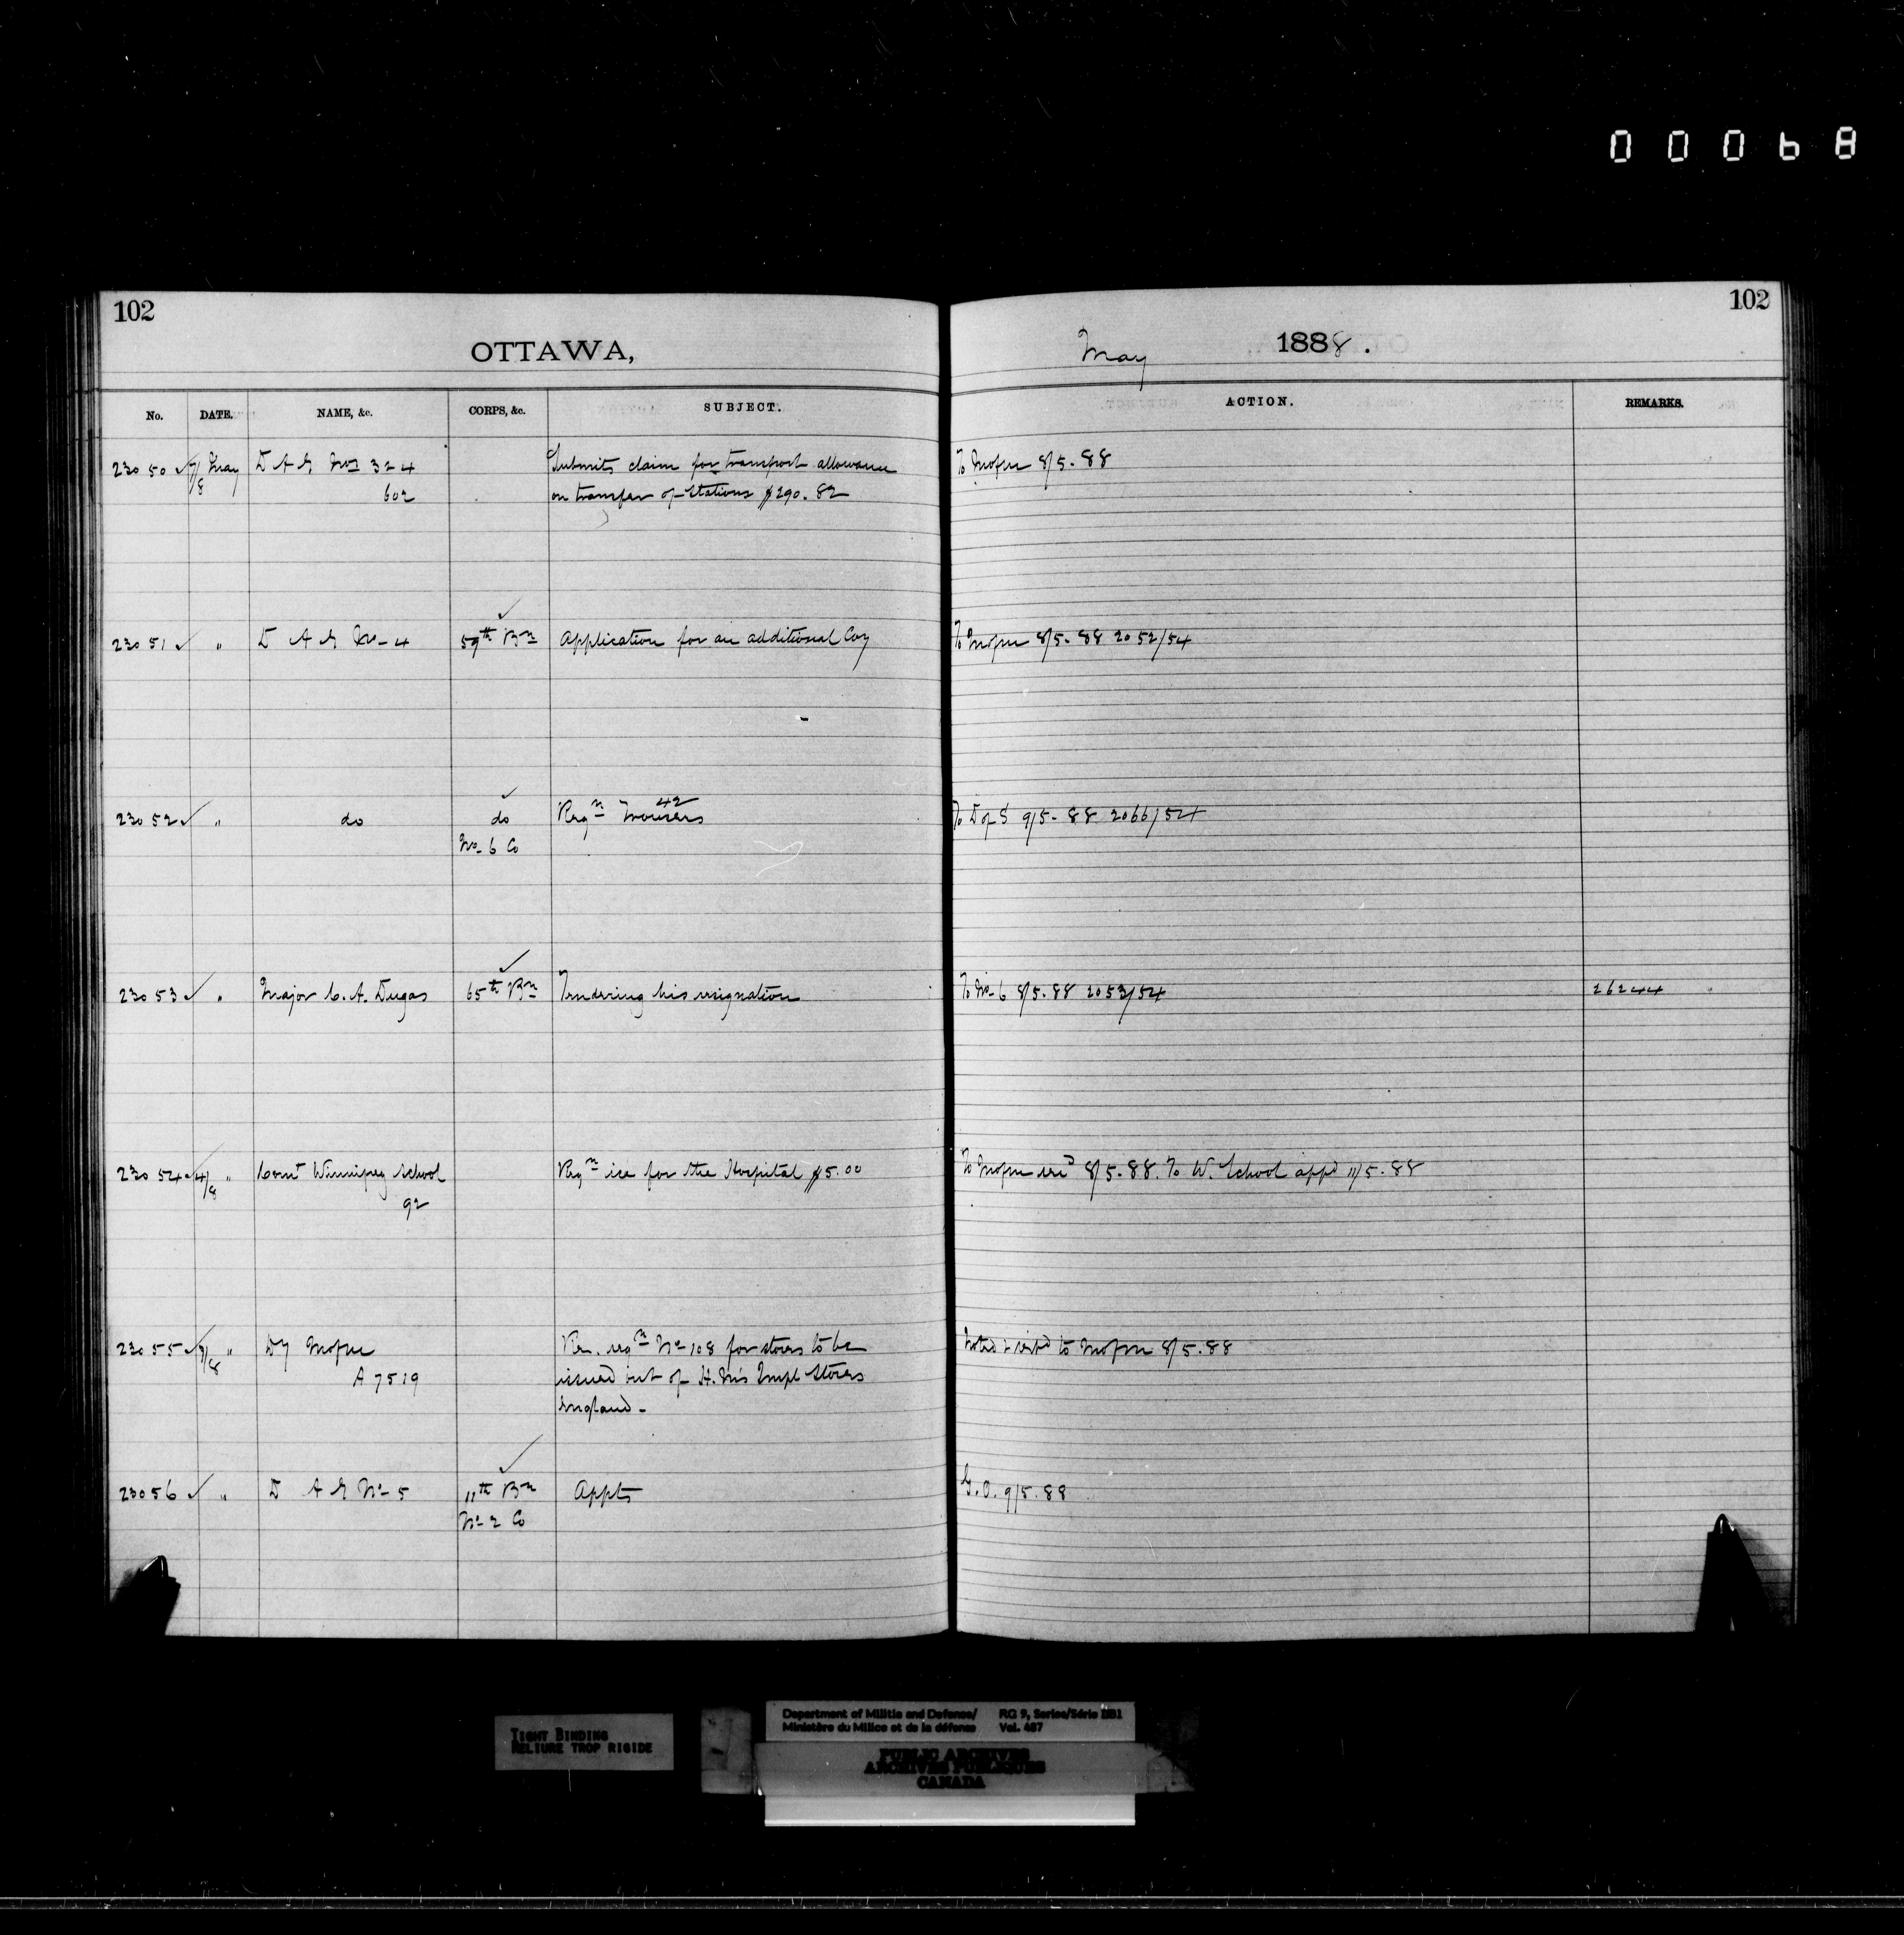 00068
102
OTTAWA,
May 1888.
102
No. DATE. NAME, &c. CORPS, &c. SUBJECT. ACTION. REMARKS.
23050 ✓ 7/8 May D A G Nos 3 & 4 Submits claim for transport allowance To Mofm 8/5.88
602 on transfer of Stations $290.82
23051 ✓ " D A G No 4 59th Bn Application for an additional Coy To Mofm 8/5.88 2052/54
23052 ✓ " do do Reqn 42 Trousers To D of S 9/5.88 2066/54
No 6 Co
23053 ✓ " Major C. A. Dugas 65th Bn Tendering his resignation To No 6 8/5.88 2053/54 26244
23054 ✓ 4/8 " Comt Winnipeg School Reqn ice for the Hospital $5.00 To Mofm 8/5.88. To W. School appd 11/5.88
92
23055 ✓ /8 " Dy Mofm reqn No 108 for stores to be Noted & retd to Mofm 8/5.88
A 7519 issued out of H. M's Impl Stores
England -
23056 ✓ " D A G No 5 11th Bn Appts G.O. 9/5.88
No 2 Co
TIGHT BINDING
RELIURE TROP RIGIDE
Department of Militia and Defense/ RG 9, Series/Série IIB1
Ministère du Milice et de la défense Vol. 487
PUBLIC ARCHIVES
ARCHIVES PUBLIQUES
CANADA